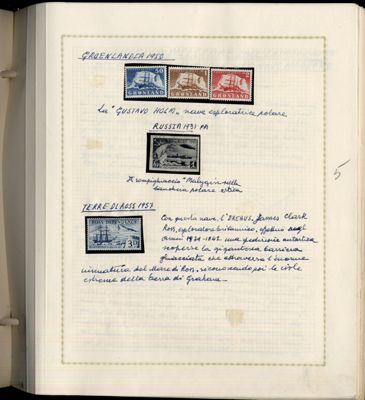 GROENLANDIA 1950
50
GRØNLAND
GRØNLAND
GRØNLAND
La "GUSTAVO HOLM", nave esploratrice polare
RUSSIA 1931 PA
Il rompighiaccio "Malyguin" nella
banchisa polare
TERRE DI ROSS 1957
ROSS DEPENDENCY
3d
Con questa nave, l'EREBUS, James Clark
Ross, esploratore britannico,
anni 1839-1842 una spedizione antartica
scoperse la gigantesca barriera
ghiacciata che attraversa l'enorme
insenatura del Mare di Ross, riconoscendo poi le isole
estreme della terra di Graham.
5